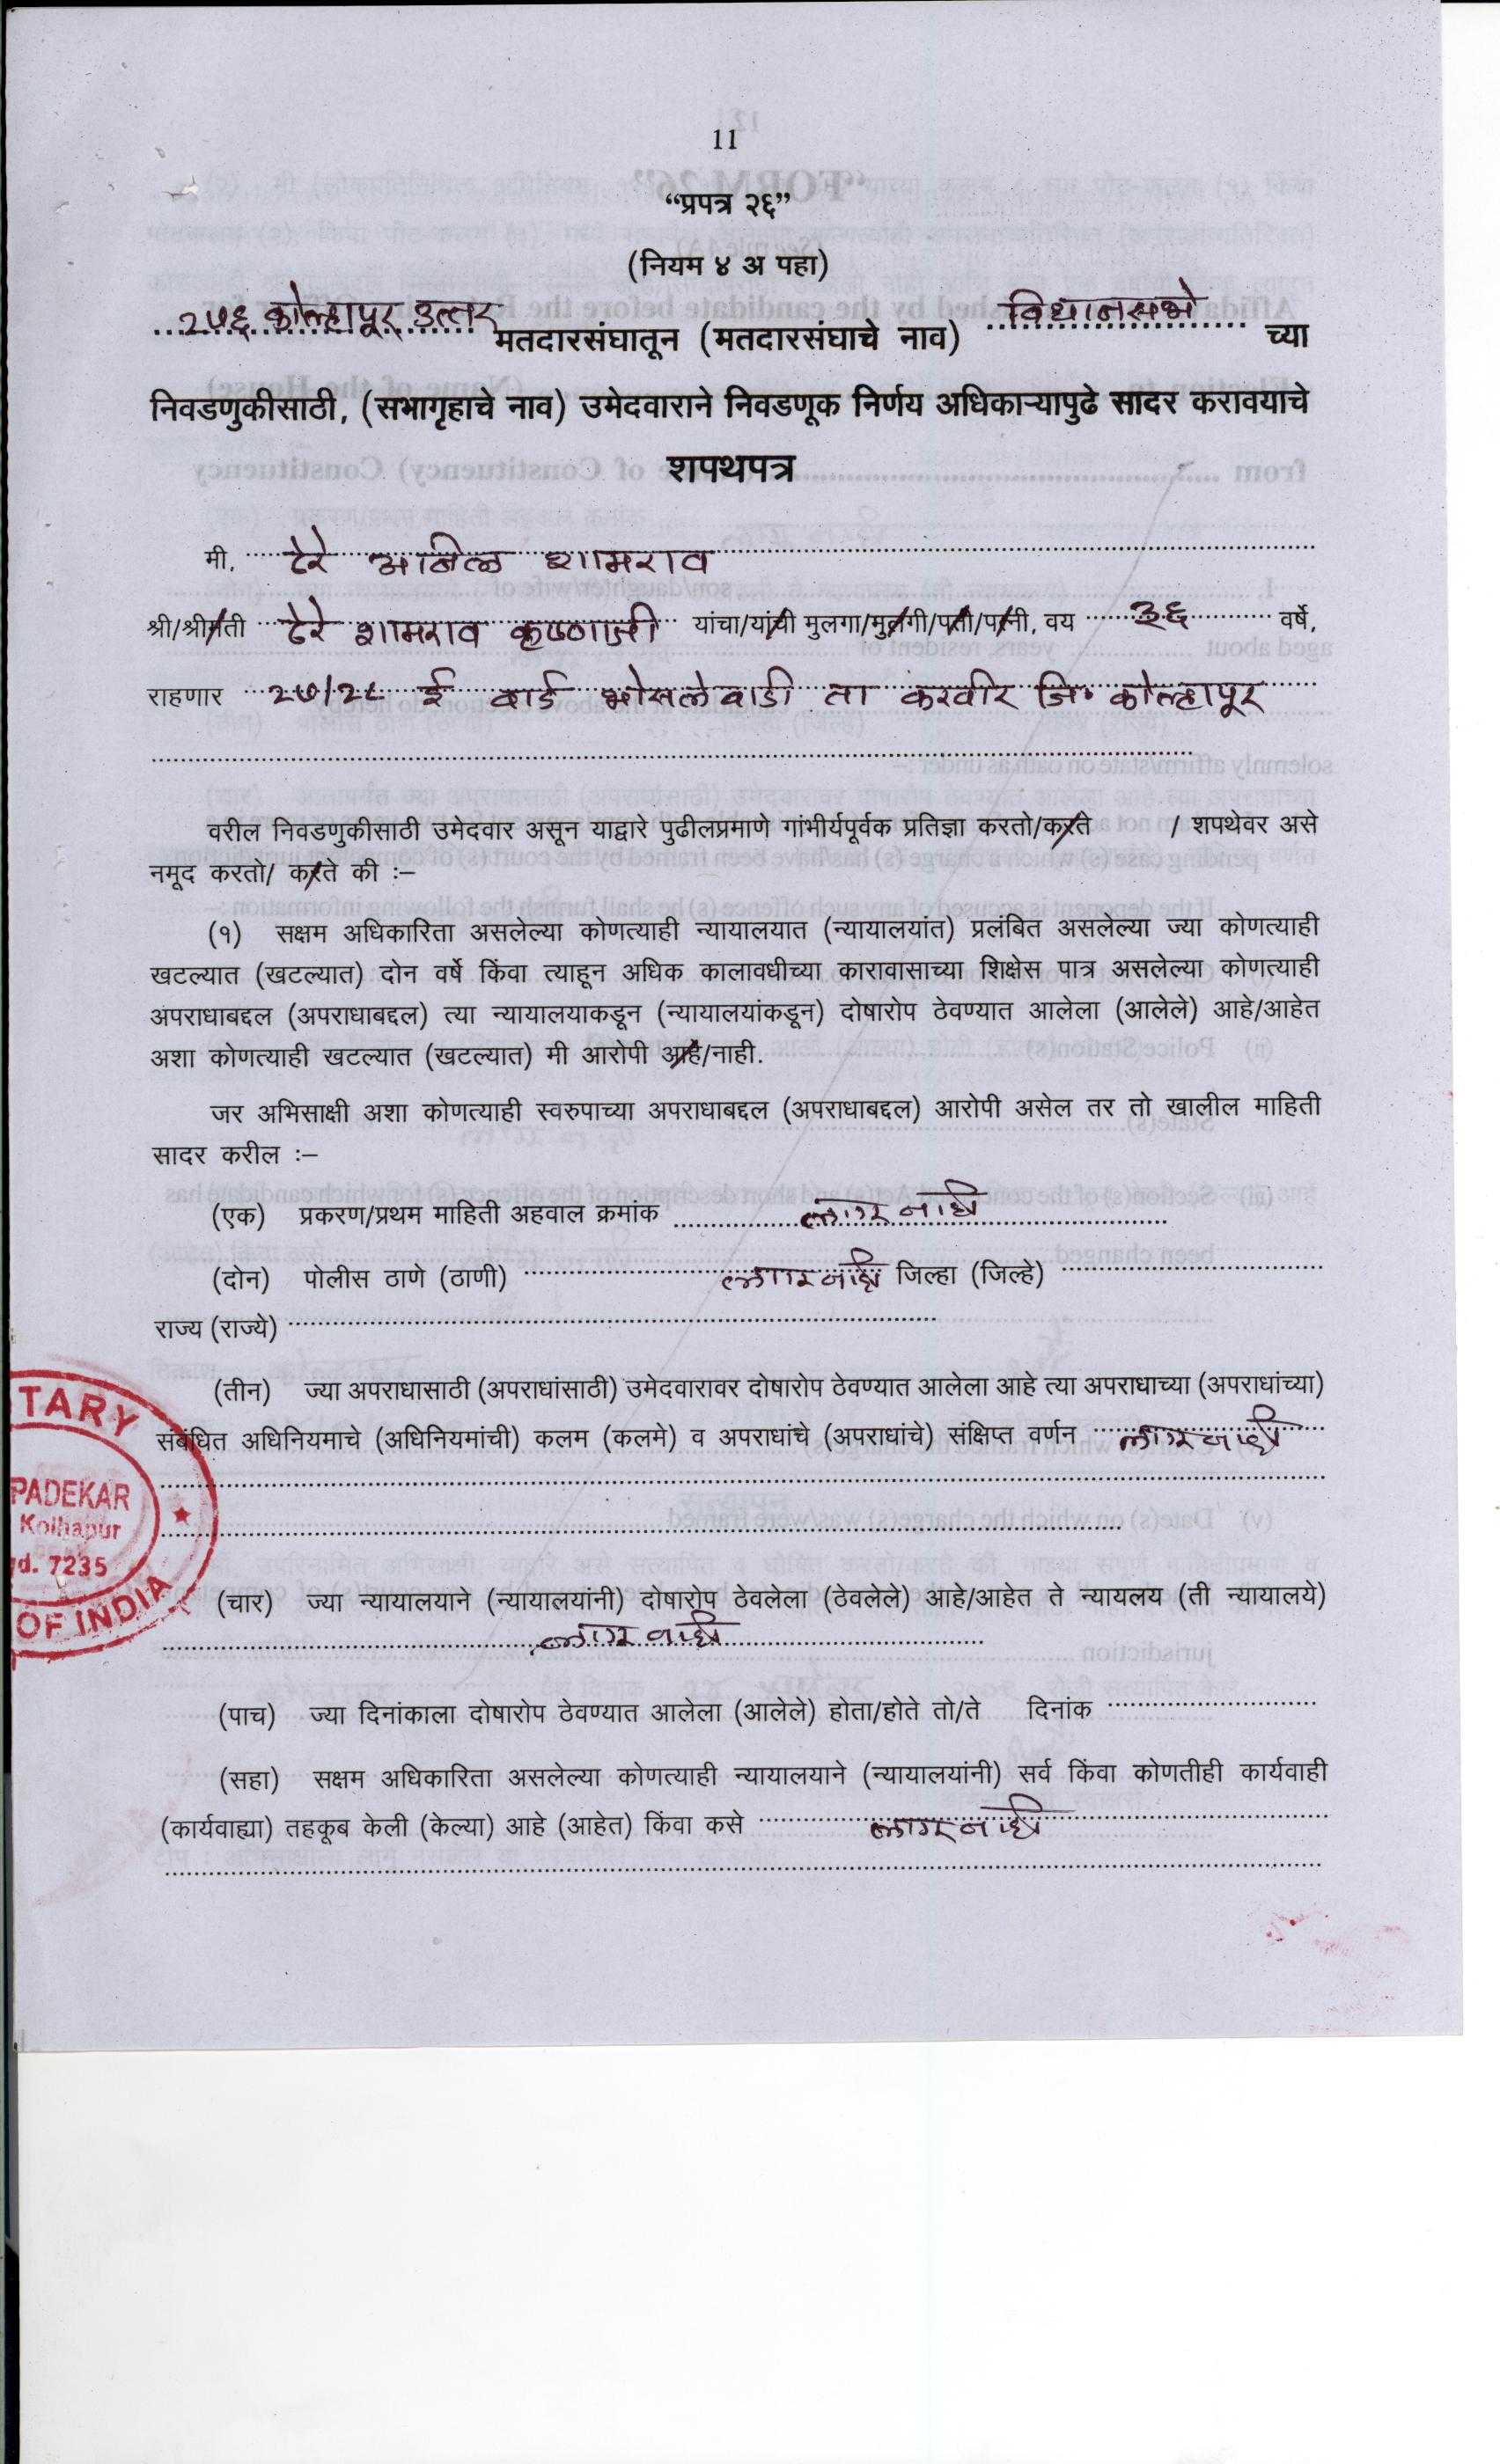 11
“प्रपत्र २६”
(नियम ४ अ पहा)
२७६ कोल्हापूर उत्तर मतदारसंघातून (मतदारसंघाचे नाव) विधानसभे च्या
निवडणुकीसाठी, (सभागृहाचे नाव) उमेदवाराने निवडणूक निर्णय अधिकाऱ्यापुढे सादर करावयाचे
शपथपत्र
मी. ढेरे अनिल शामराव
श्री/श्रीमती ढेरे शामराव कृष्णाजी यांचा/यांची मुलगा/मुलगी/पती/पत्नी, वय ३६ वर्षे,
राहणार २७/२८ ई वार्ड भोसलेवाडी ता करवीर जि. कोल्हापूर
वरील निवडणुकीसाठी उमेदवार असून याद्वारे पुढीलप्रमाणे गांभीर्यपूर्वक प्रतिज्ञा करतो/करते / शपथेवर असे
नमूद करतो/ करते की :–
(१) सक्षम अधिकारिता असलेल्या कोणत्याही न्यायालयात (न्यायालयांत) प्रलंबित असलेल्या ज्या कोणत्याही
खटल्यात (खटल्यात) दोन वर्षे किंवा त्याहून अधिक कालावधीच्या कारावासाच्या शिक्षेस पात्र असलेल्या कोणत्याही
अपराधाबद्दल (अपराधाबद्दल) त्या न्यायालयाकडून (न्यायालयांकडून) दोषारोप ठेवण्यात आलेला (आलेले) आहे/आहेत
अशा कोणत्याही खटल्यात (खटल्यात) मी आरोपी आहे/नाही.
जर अभिसाक्षी अशा कोणत्याही स्वरुपाच्या अपराधाबद्दल (अपराधाबद्दल) आरोपी असेल तर तो खालील माहिती
सादर करील :–
(एक) प्रकरण/प्रथम माहिती अहवाल क्रमांक लागू नाही
(दोन) पोलीस ठाणे (ठाणी) लागू नाही जिल्हा (जिल्हे)
राज्य (राज्ये)
(तीन) ज्या अपराधासाठी (अपराधांसाठी) उमेदवारावर दोषारोप ठेवण्यात आलेला आहे त्या अपराधाच्या (अपराधांच्या)
संबंधित अधिनियमाचे (अधिनियमांची) कलम (कलमे) व अपराधांचे (अपराधांचे) संक्षिप्त वर्णन लागू नाही
TARY
PADEKAR
Kolhapur
d. 7235
OF INDIA
(चार) ज्या न्यायालयाने (न्यायालयांनी) दोषारोप ठेवलेला (ठेवलेले) आहे/आहेत ते न्यायलय (ती न्यायालये)
लागू नाही
(पाच) ज्या दिनांकाला दोषारोप ठेवण्यात आलेला (आलेले) होता/होते तो/ते दिनांक
(सहा) सक्षम अधिकारिता असलेल्या कोणत्याही न्यायालयाने (न्यायालयांनी) सर्व किंवा कोणतीही कार्यवाही
(कार्यवाह्या) तहकूब केली (केल्या) आहे (आहेत) किंवा कसे लागू नाही